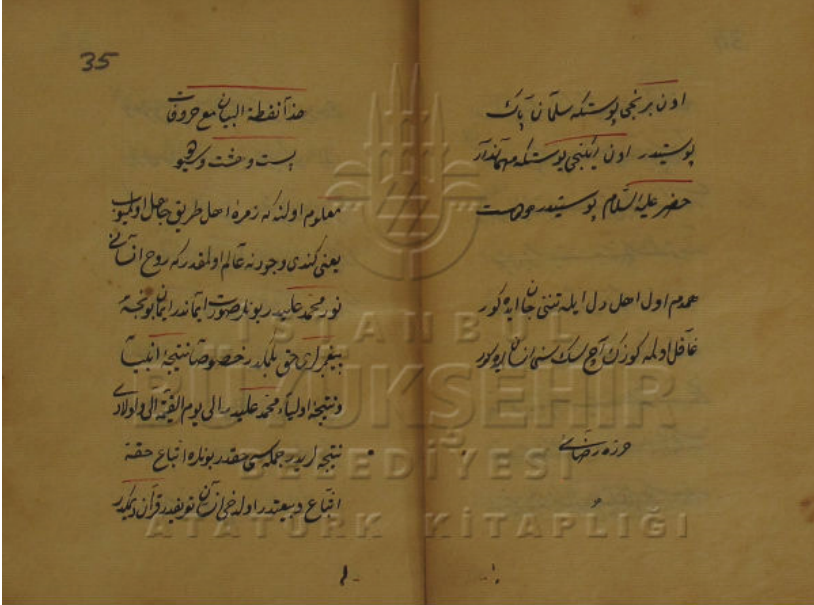 اون برنجی پوستکه سلمان پاک
پوستیدر اون ایکنجی پوستکه مهماندار
حضر علیه السلام پوستیدر
همدم اول اهل دل ایله تنی جان ایده کور
غافل اولمه کوزک آچ
35
هذا نقطة البیان مع حروفات
بیست و هشت و
معلوم اولنه که زمرۀ اهل طریق جاهل اولمیوب
یعنی کندی وجودنه عالم اولمقدر که روح انسانی
نور محمد علیدر بونلر صورت ایماندر ایمان بونجه
پیغمبرلری حق بلکدر خصوصا نتیجۀ انبیا
و نتیجۀ اولیاء محمد علیدر الی یوم القیمه الی و اولادی
نتیجه لریدر جمله سی حقدر بونلره اتباع حقه
اتباع و بیعتدر اوله خی انسان قرآن دیمکدر
ISTANBUL
BÜYÜKŞEHİR
BELEDİYESİ
ATATÜRK KİTAPLIĞI